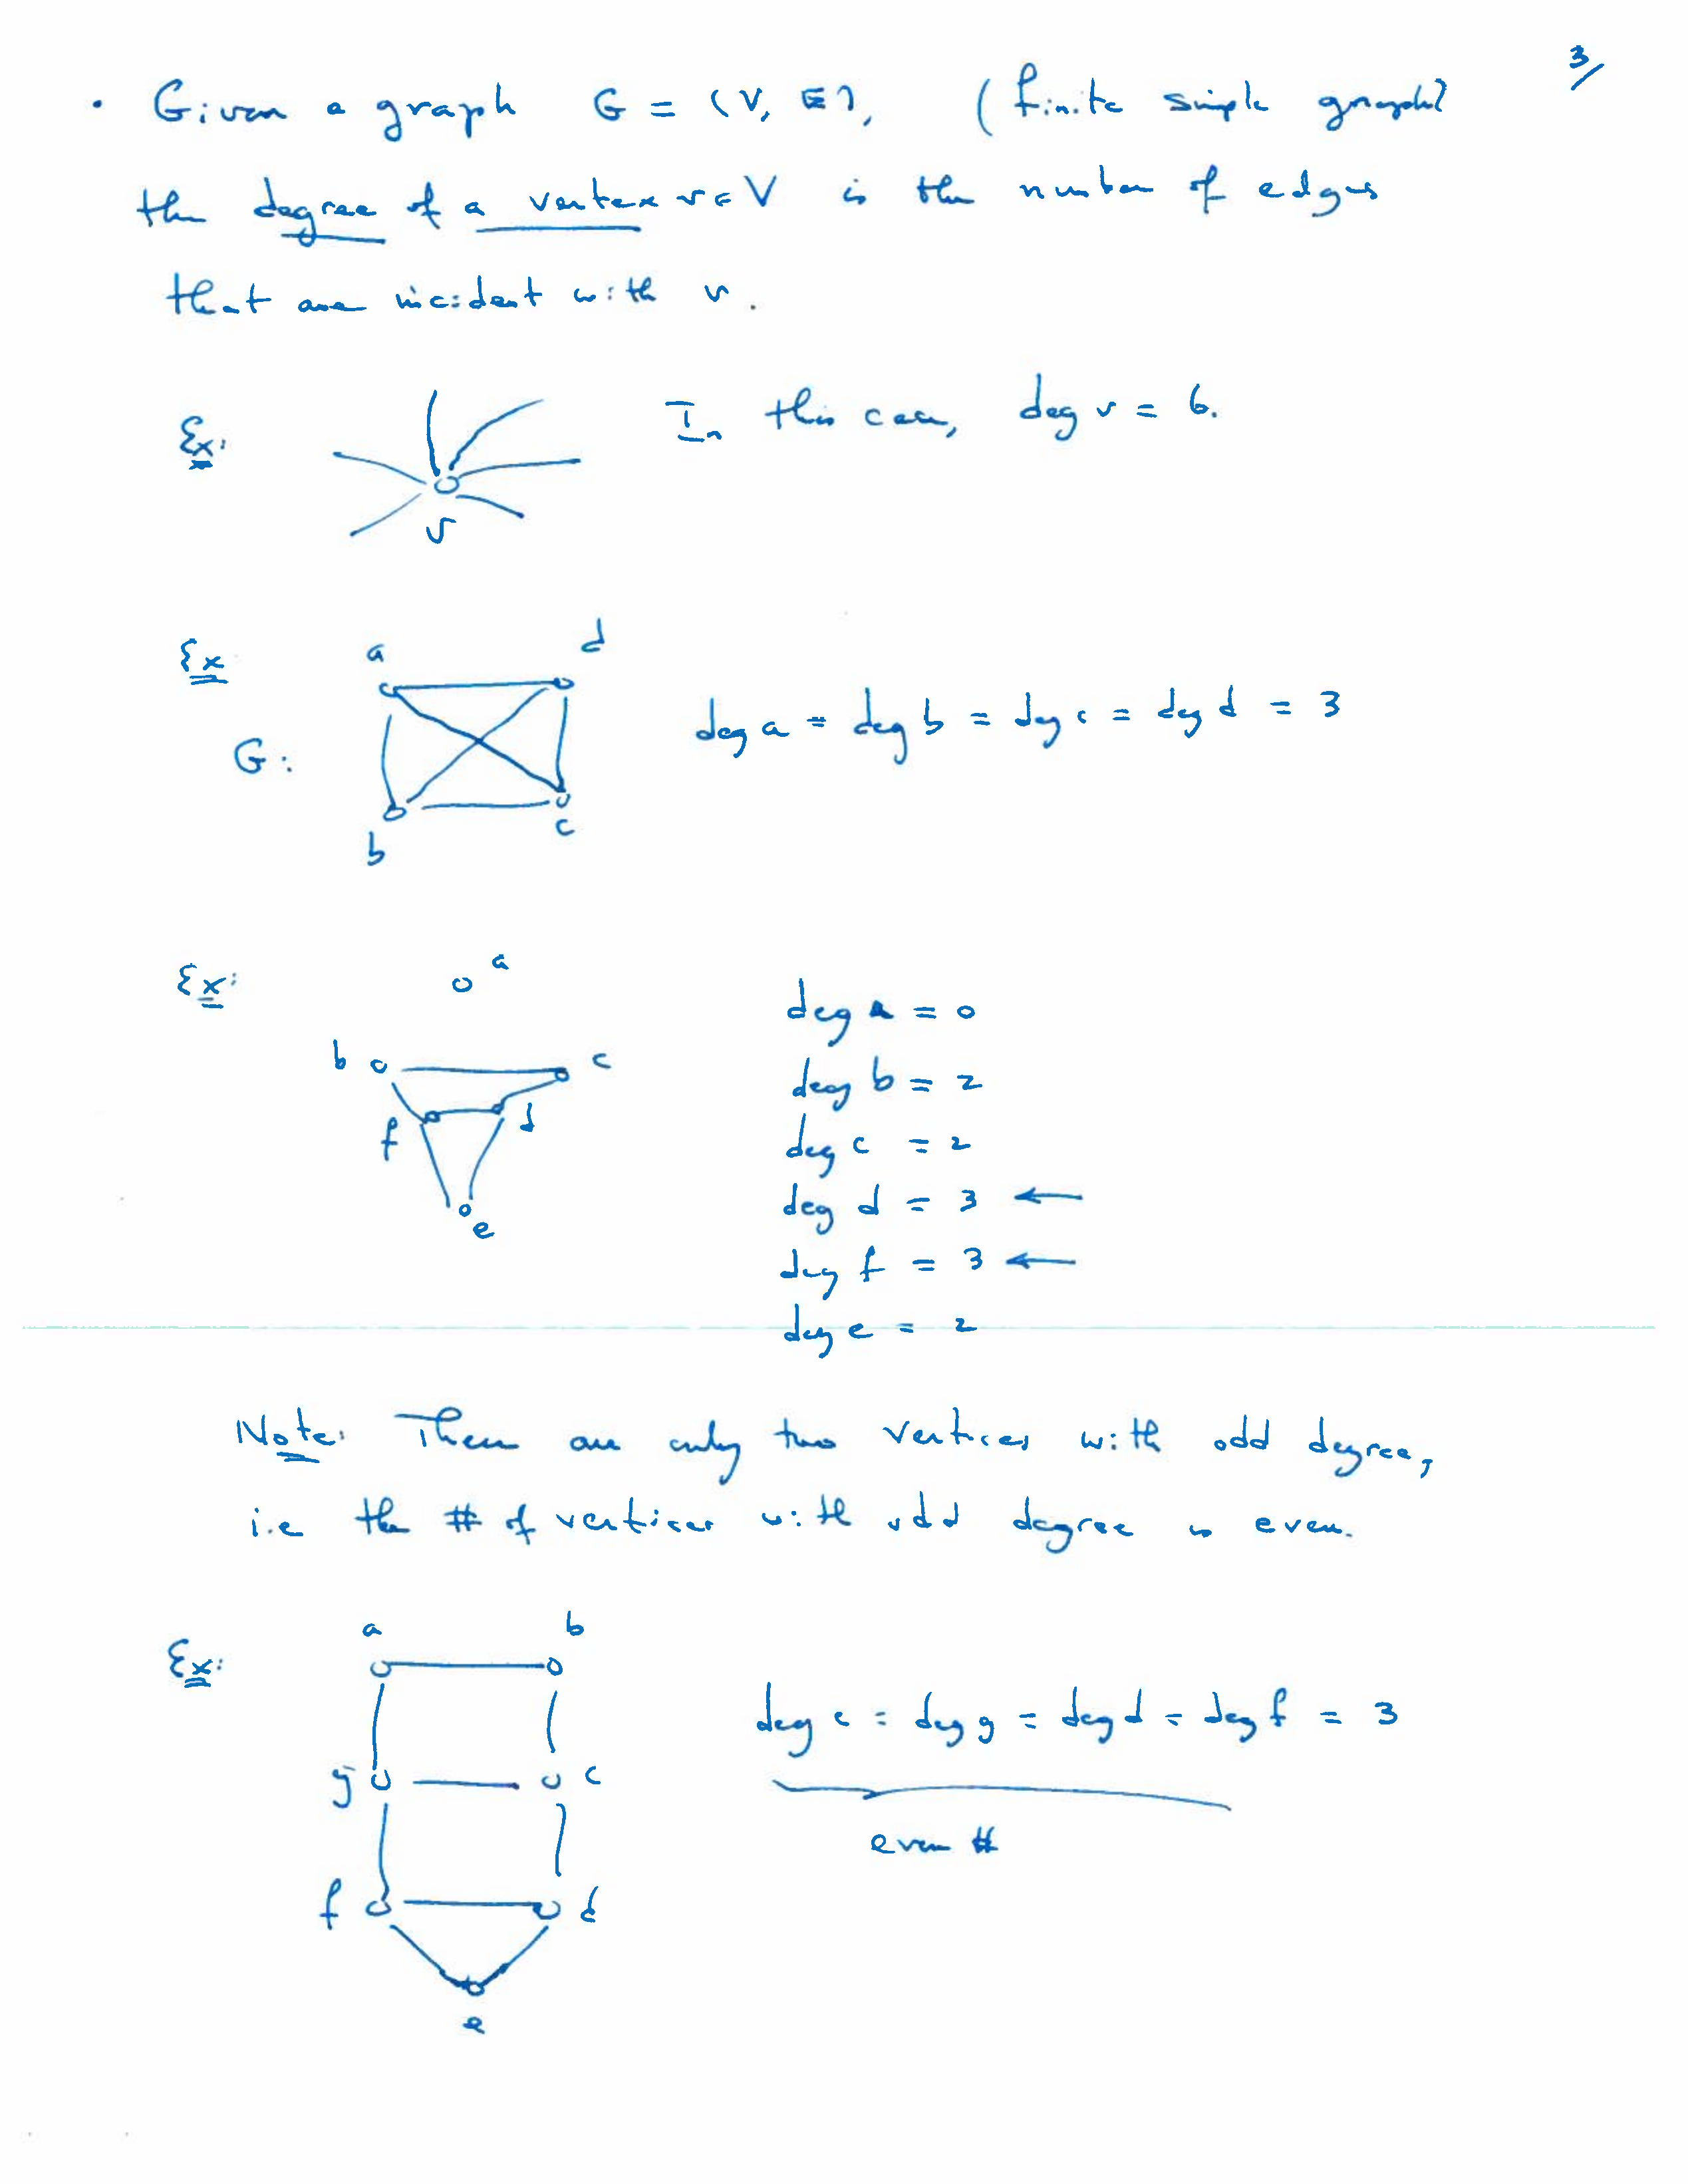 3/
• Given a graph G = (V, E), (finite simple graph)
the degree of a vertex v ∈ V is the number of edges
that are incident with v.
Ex: In this case, deg v = 6.
v
Ex a d
G: deg a = deg b = deg c = deg d = 3
b c
Ex: a
deg a = 0
b c
deg b = 2
f d
deg c = 2
deg d = 3 ←
e
deg f = 3 ←
deg e = 2
Note: There are only two vertices with odd degree,
i.e the # of vertices with odd degree is even.
a b
Ex:
deg c = deg g = deg d = deg f = 3
g c
even #
f d
e